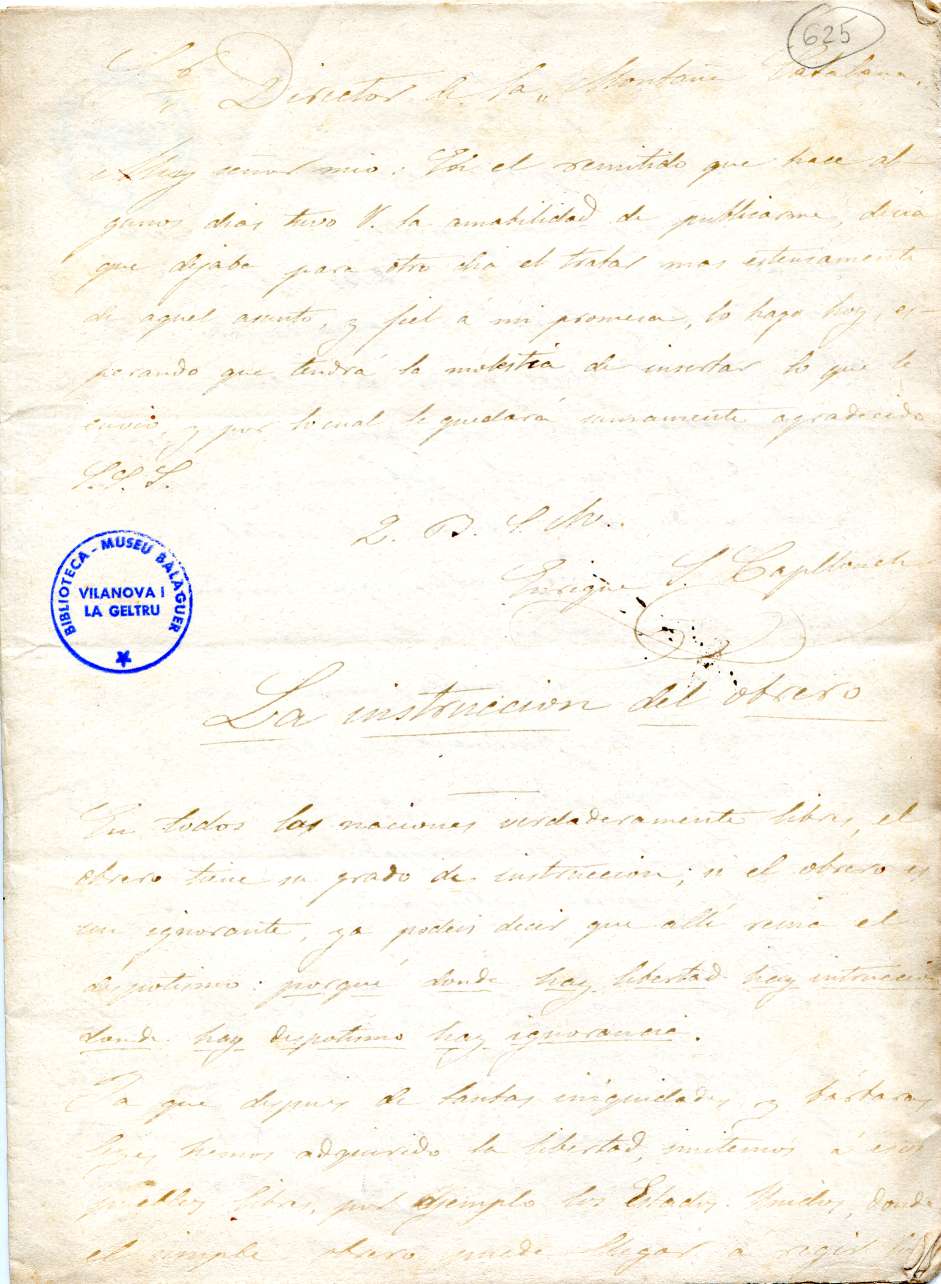 625
Sr. Director de la "Montaña Catalana.
Muy señor mio: En el remitido que hace al-
gunos dias tuvo V. la amabilidad de publicarme, decia
que dejaba para otro dia el tratar mas estensamente
de aquel asunto, y fiel á mi promesa, lo hago hoy, es-
perando que tendrá la molestia de insertar lo que le
envio, y por lo cual le quedará sumamente agradecido
S.S.S.
Q. B. S. M.
Enrique S. Capllonch
BIBLIOTECA - MUSEU BALAGUER
VILANOVA I
LA GELTRU
La instruccion del obrero
En todas las naciones verdaderamente libres, el
obrero tiene su grado de instruccion; si el obrero es
un ignorante, ya podeis decir que allí reina el
despotismo: porqué donde hay libertad hay intruccion
donde hay despotismo hay ignorancia.
Ya que despues de tantas iniquidades y bárbaras
leyes hemos adquirido la libertad, imitemos á esos
pueblos libres, por ejemplo los Estados-Unidos, donde
el simple obrero puede llegar a regir